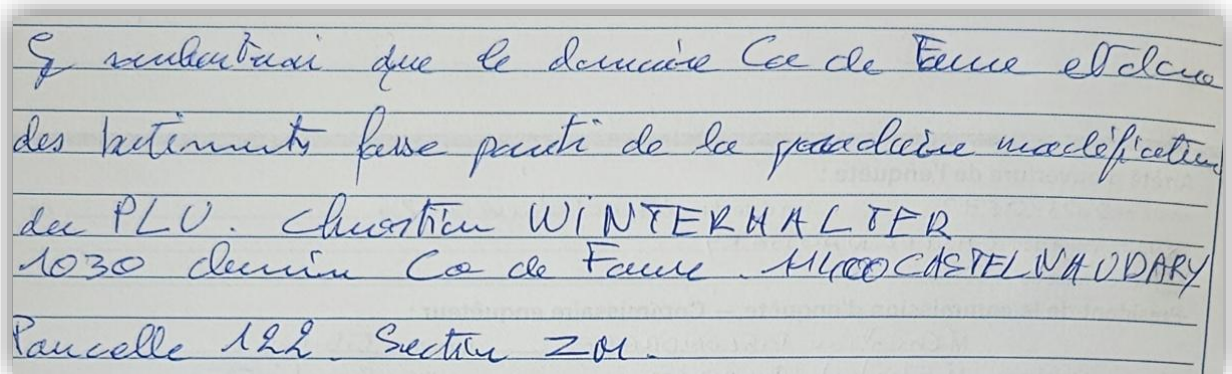 Je souhaiterai que le domaine Ca de Faure et donc
des batiments fasse parti de la prochaine modification
du PLU. Christian WINTERHALTER
1030 chemin Ca de Faure. 11400 CASTELNAUDARY
Parcelle 122. Section Z01.